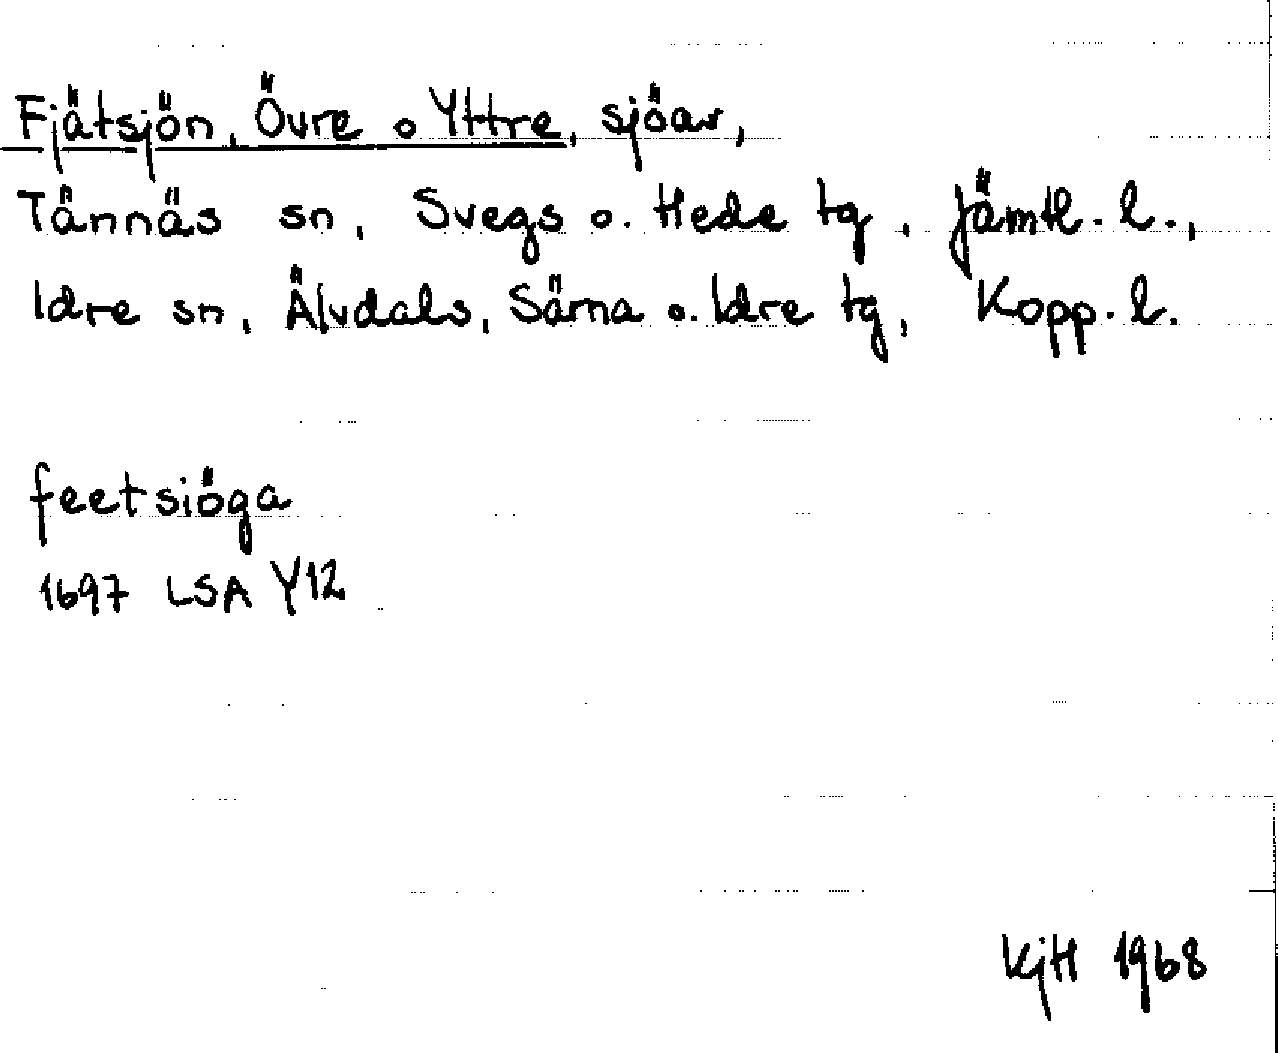 Fjätsjön, Övre o Yttre, sjöar,
Tännäs sn, Svegs o. Hede tg, Jämtl. l.,
Idre sn, Älvdals, Särna o. Idre tg, Kopp. l.
feetsiöga
1697 LSA Y12
KjH 1968